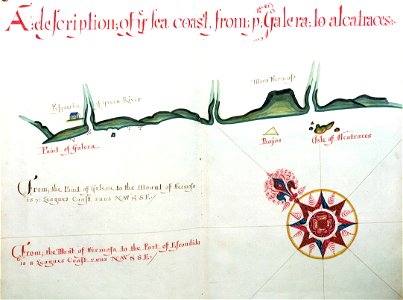 A: description: of yͤ sea coast from: pͭ Galera: to alcatraces:
River
Moro Hermoso
Point of Galera
Bajos
Isle of Alcatraces
From, the Point of Galera, to the Mount of Hermoso
is 7 Leagues Coast, runs N.W & S.E.
From, the Mont of Hermosa to the Port of Escondido
is 2 Leagues Coast, runs N.W & S.E.